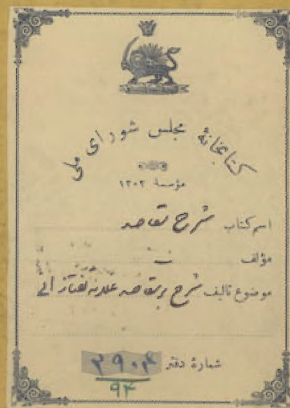 کتابخانهٔ مجلس شورای ملی
مؤسسهٔ ۱۳۰۲
اسم کتاب شرح مقاصد
مؤلف
موضوع تالیف شرح بر مقاصد علامه تفتازانی
شمارهٔ دفتر ۳۹۰۴
۹۴